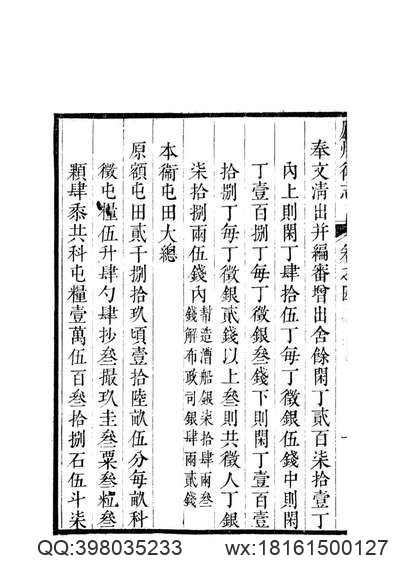 奉文清出并編審增出舍餘閑丁貳百柒拾壹丁
內上則閑丁肆拾伍丁每丁徵銀伍錢中則閑
丁壹百捌丁每丁徵銀叄錢下則閑丁壹百壹
拾捌丁每丁徵銀貳錢以上叄則共徵人丁銀
柒拾捌兩伍錢內
幫造漕船銀柒拾肆兩叄
錢解布政司銀肆兩貳錢
本衛屯田大總
原額屯田貳千捌拾玖頃壹拾陸畝伍分每畝科
徵屯糧伍升肆勺肆抄叄撮玖圭叄粟叄粒叄
顆肆黍共科屯糧壹萬伍百叄拾捌石伍斗柒
QQ:398035233 wx:18161500127